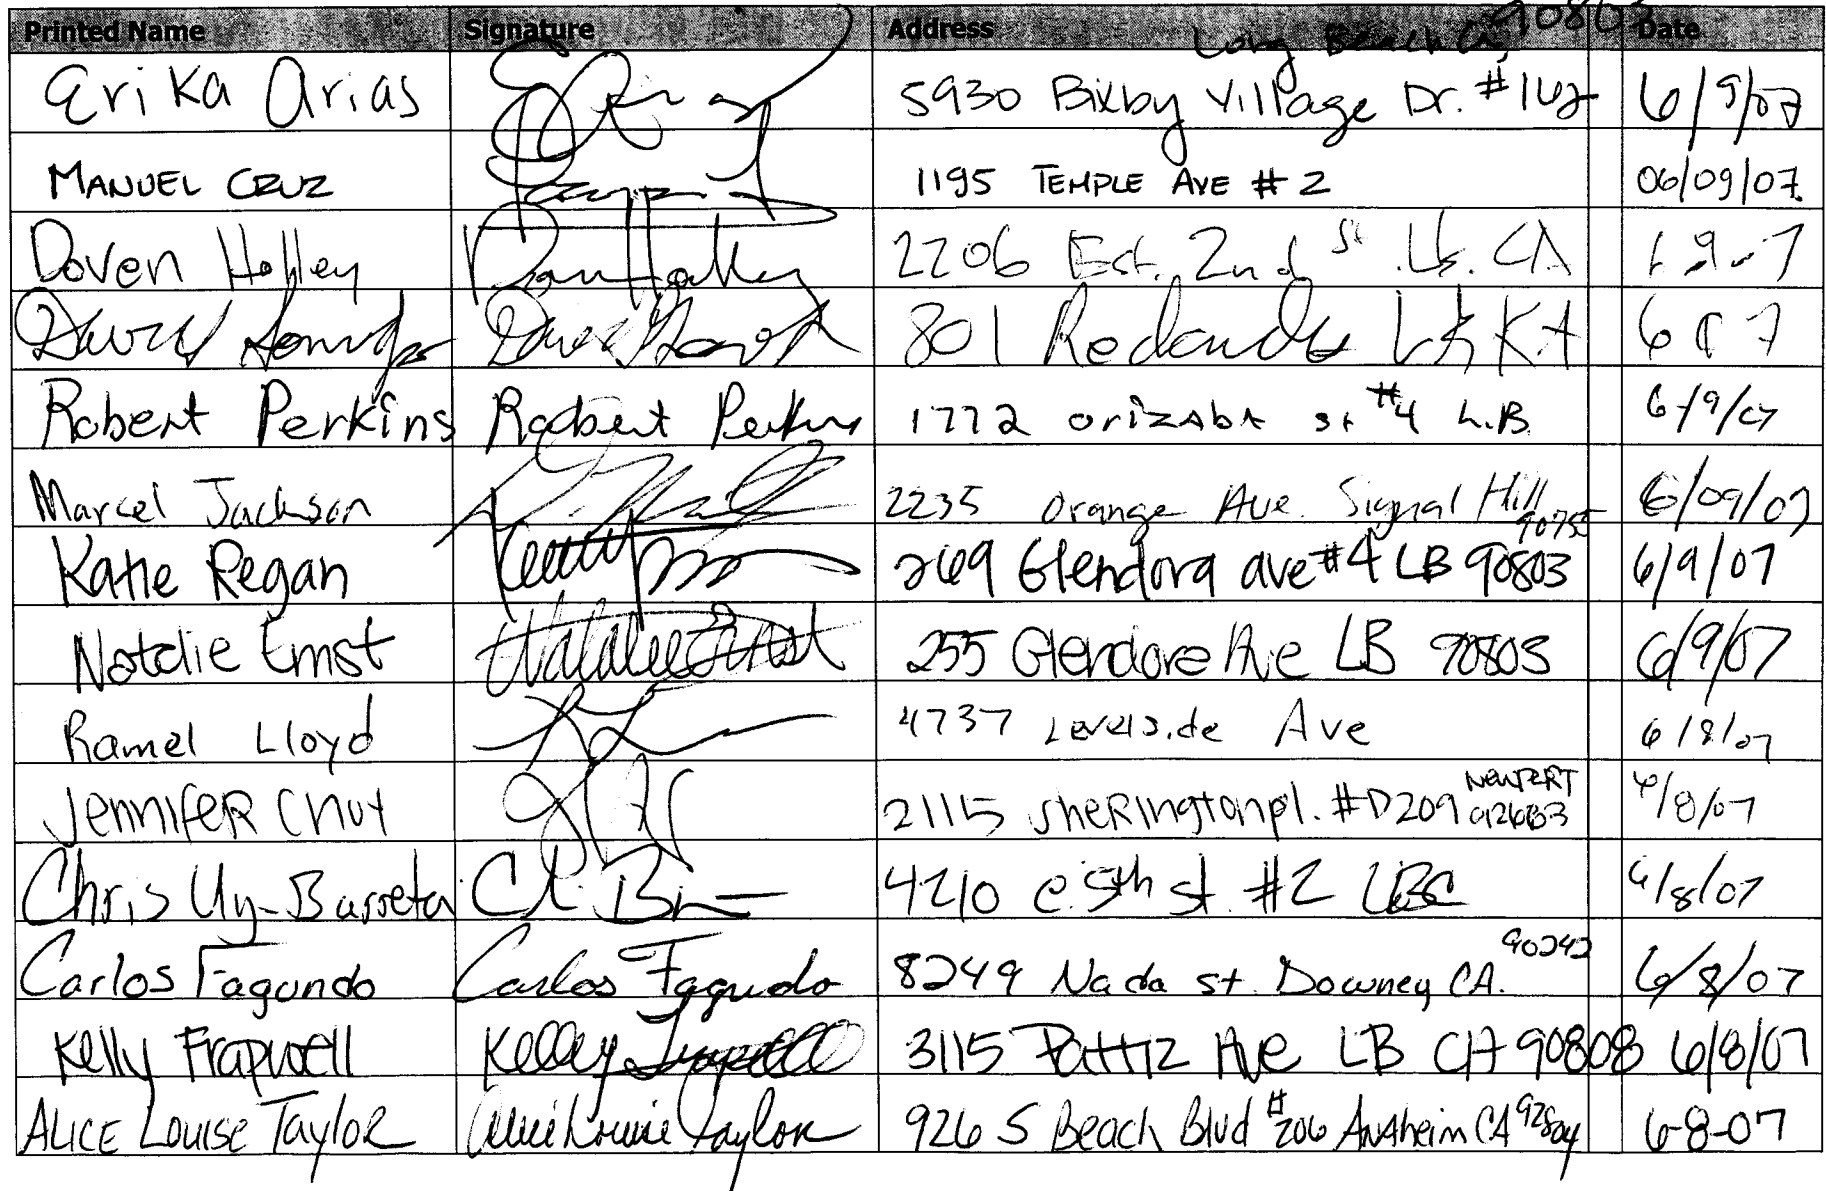 Printed Name Signature Address Date
Long Beach Ca, 90803
Erika Arias 5930 Bixby Village Dr. #162 6/9/07
MANUEL CRUZ 1195 TEMPLE AVE #2 06/09/07
Doven Holley 2206 Est. 2nd st. Lb. CA 6-9-7
David 801 Redondo 6 7
Robert Perkins Robert Perkins 1772 orizAbA st #4 L.B. 6/9/07
Marcel Jackson 2235 Orange Ave. Signal Hill 90755 6/09/07
Katie Regan 269 Glendora ave #4 LB 90803 6/9/07
Natalie Ernst Natalie Ernst 255 Glendora Ave LB 90803 6/9/07
Ramel Lloyd 4737 Ave 6/8/07
JENNIFER CHOY 21115 SheRingtonpl. #D209 NEWPORT 92663 6/8/07
Chris Uy-Barreta 4210 e. 5th st. #2 LBC 6/8/07
Carlos Fagundo Carlos Fagundo 8249 Nada st. Downey CA. 90242 6/8/07
Kelly Frapwell Kelly Frapwell 3115 Ave LB CA 90808 6/8/07
ALICE LOUISE TayloR Alice Louise Taylor 926 S Beach Blvd #206 AnAheim CA 92804 6-8-07